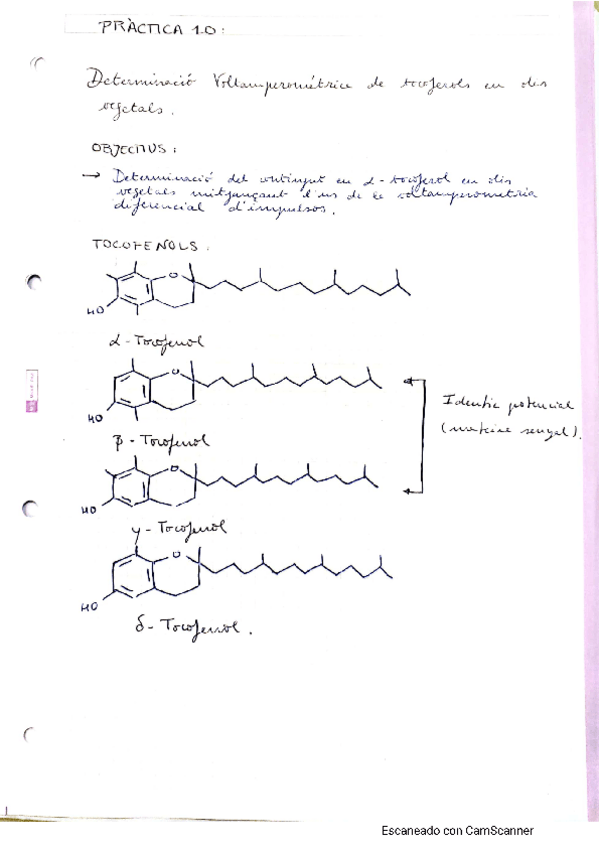 PRÀCTICA 1.0:
Determinació Voltamperomètrica de tocoferols en olis
vegetals.
OBJECTIUS:
→ Determinació del contingut en α-tocoferol en olis
vegetals mitjançant l'ús de la voltamperometria
diferencial d'impulsos.
TOCOFEROLS:
O
HO
α-Tocoferol
O
HO
β-Tocoferol
Identic potencial
(mateixa senyal).
O
HO
γ-Tocoferol
O
HO
δ-Tocoferol.
Escaneado con CamScanner